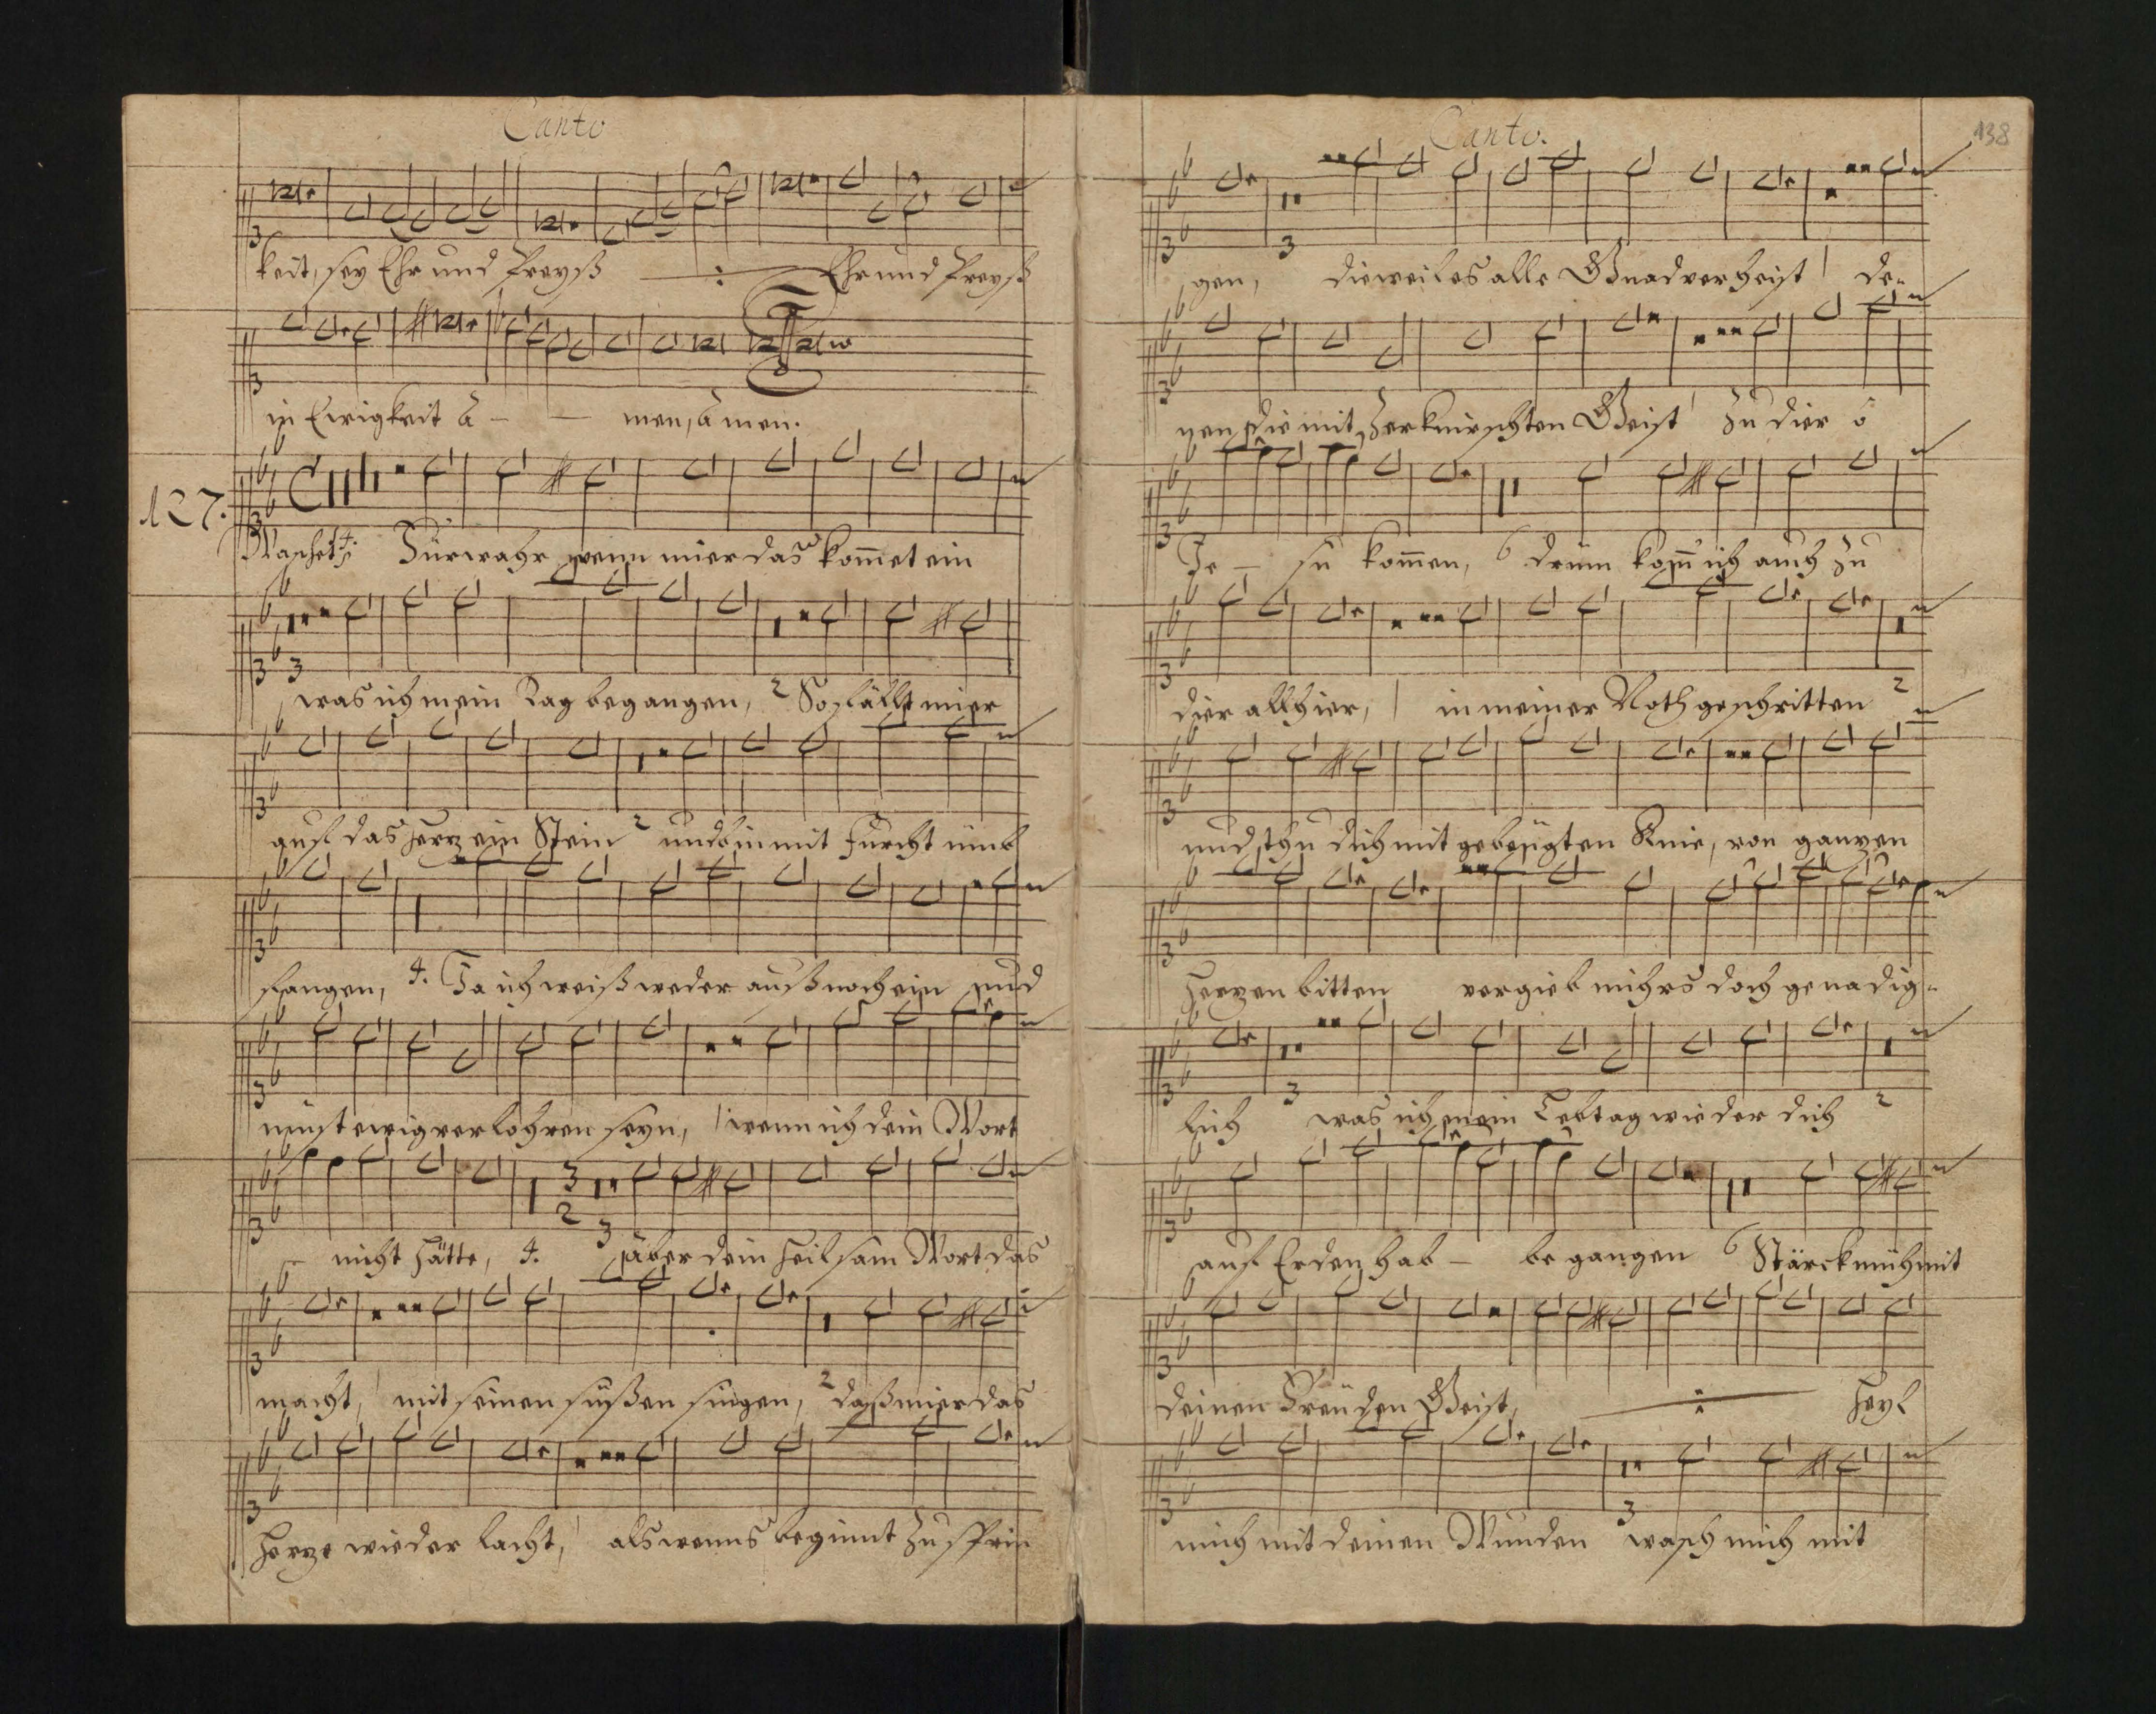 Canto
keit, sey Ehr und Preyß Ehr und Preyß
in Ewigkeit A - - men, amen.
127.
Fürwahr wenn mier das kom̄et ein
was ich mein Tag begangen, 2 So fällt mier
auf das Herz ein Stein 2 und bin mit Furcht umb
fangen, 4. Ja ich weiß weder auß noch ein und
müst ewig verlohren seyn, 1 wenn ich dein Wort
nicht hätte, 4. 3 aber dein heilsam Wort das
macht, 1 mit seinen süßen singen, 2 daß mier das
Herze wieder lacht, 1 als wenns beginnt zu sprin
Canto.
138
gen, 3 dieweil es alle Gnad verheist 1 de-
nen die mit Zerknirschten Geist 1 zu dier ô
Je - su kom̄en, 6 drum kom̄ ich auch zu
dier allhier, 1 in meiner Noth geschritten 2
und thu dich mit gebeügten Knie, von ganzen
Herzen bitten vergieb michrs doch genadig-
lich 3 was ich mein Lebtag wieder dich 2
auf Erden hab - be gangen 6 Stärck mich mit
deinen Freüden Geist, Heyl
mich mit deinen Wunden 3 wasch mich mit